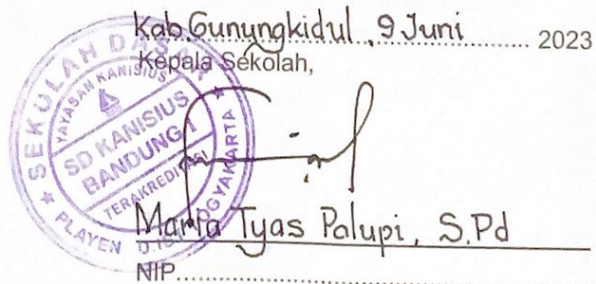 Kab. Gunungkidul, 9 Juni 2023
Kepala Sekolah,
SEKOLAH DASAR
YAYASAN KANISIUS
SD KANISIUS
BANDUNG 1
TERAKREDITASI
PLAYEN D.I. YOGYAKARTA
Maria Tyas Palupi, S.Pd
NIP.